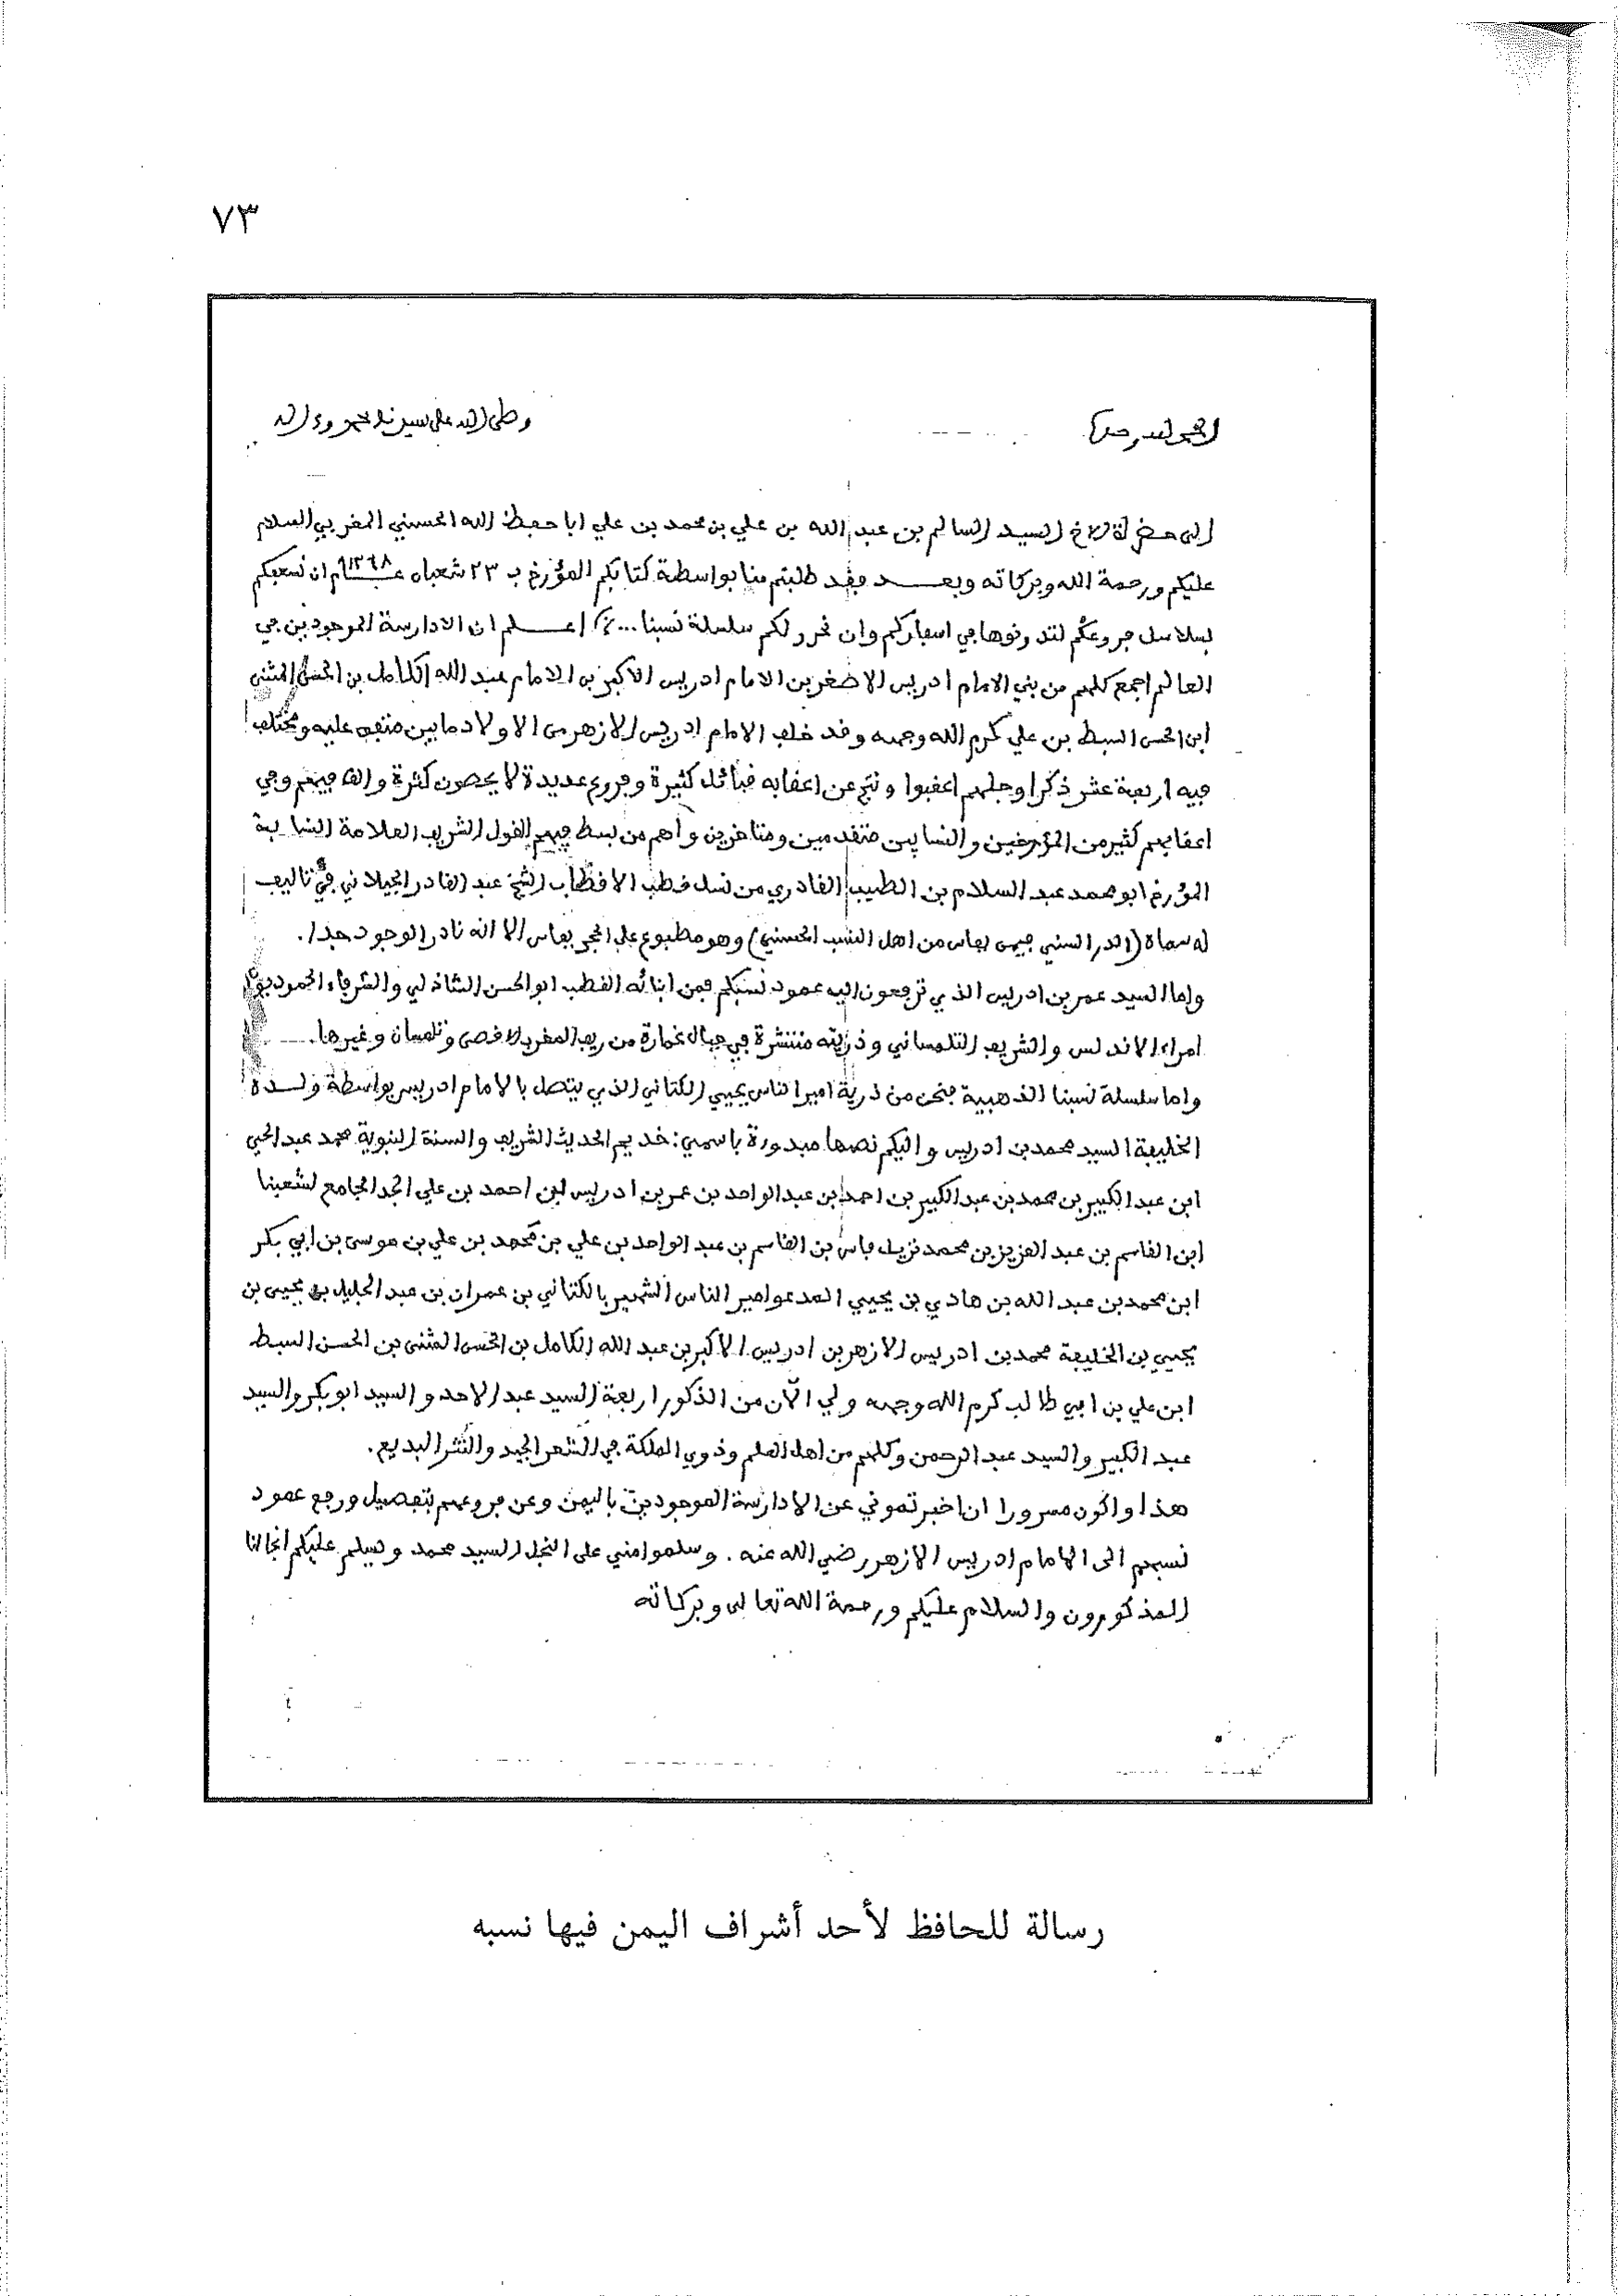 ٧٣
الحمد لله وحده
وصلى الله على سيدنا محمد وءاله
الى حضرة الاخ السيد السالم بن عبد الله بن علي بن محمد بن علي ابا حفظ الله الحسني المغربي السلام
عليكم ورحمة الله وبركاته وبعد فقد طلبتم منا بواسطة كتابكم المؤرخ ب ٢٣ شعبان عام ١٣٦٨ ان نسعفكم
بسلاسل فروعكم لتدرنوها في اسفاركم وان نحرر لكم سلسلة نسبنا ... اعلم ان الادارسة الموجودين في
العالم اجمع كلهم من بني الامام ادريس الاصغر بن الامام ادريس الاكبر بن الامام عبد الله الكامل بن الحسن المثنى
ابن الحسن السبط بن علي كرم الله وجهه وقد خلف الامام ادريس الازهر من الاولاد ما بين متفق عليه ومختلف
فيه اربعة عشر ذكرا وجلهم اعقبوا ونتج عن اعقابه قبائل كثيرة وفروع عديدة لا يحصون كثرة والف فيهم وفي
اعقابهم كثير من المؤرخين والنسابين متقدمين ومتاخرين واهم من بسط فيهم القول الشريف العلامة النسابة
المؤرخ ابو محمد عبد السلام بن الطيب القادري من نسل قطب الاقطاب الشيخ عبد القادر الجيلاني في تاليف
له سماه (الدر السني فيمن بفاس من اهل النسب الحسني) وهو مطبوع على الحجر بفاس الا انه نادر الوجود جدا.
واما السيد عمر بن ادريس الذي ترجعون اليه عمود نسبكم فمن ابنائه القطب ابو الحسن الشاذلي والشرفاء الحموديون
امراء الاندلس والشريف التلمساني وذريته منتشرة في جبال غمارة من ريف المغرب الاقصى وتلمسان وغيرها.
واما سلسلة نسبنا الذهبية فنحن من ذرية امير الناس يحيي الكتاني الذي يتصل بالامام ادريس بواسطة ولده
الخليفة السيد محمد بن ادريس واليكم نصها مبدورة باسمي: خديم الحديث الشريف والسنة النبوية محمد عبد الحي
ابن عبد الكبير بن محمد بن عبد الكبير بن احمد بن عبد الواحد بن عمر بن ادريس ابن احمد بن علي الجد الجامع لشعبنا
ابن القاسم بن عبد العزيز بن محمد نزيل فاس بن القاسم بن عبد الواحد بن علي بن محمد بن علي بن موسى بن ابي بكر
ابن محمد بن عبد الله بن هادي بن يحيي المدعو امير الناس الشهير بالكتاني بن عمران بن عبد الجليل بن يحيى بن
يحيي بن الخليفة محمد بن ادريس الازهر بن ادريس الاكبر بن عبد الله الكامل بن الحسن المثنى بن الحسن السبط
ابن علي بن ابي طالب كرم الله وجهه ولي الآن من الذكور اربعة السيد عبد الاحد والسيد ابو بكر والسيد
عبد الكبير والسيد عبد الرحمن وكلهم من اهل العلم وذوي الملكة في الشعر الجيد والنثر البديع.
هذا واكون مسرورا ان اخبرتموني عن الادارسة الموجودين باليمن وعن فروعهم بتفصيل ورفع عمود
نسبهم الى الامام ادريس الازهر رضي الله عنه. وسلموا مني على النجل السيد محمد ويسلم عليكم انجالنا
المذكورون والسلام عليكم ورحمة الله تعالى وبركاته
رسالة للحافظ لأحد أشراف اليمن فيها نسبه